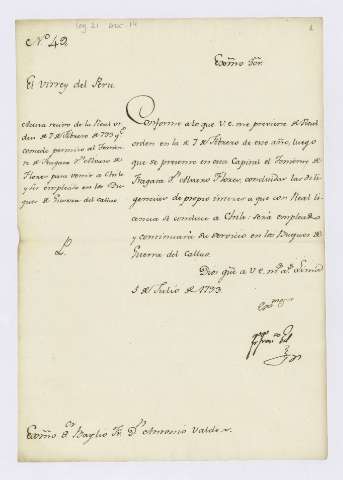 leg 21 doc 14
1
N.º 42.
Exmo Sor.
El Virrey del Peru.
Acusa recivo de la Real or
den de 7 de Febrero de 793 qe.
concede permiso al Tenien
te de Fragata Dn. Alvaro de
Florez para venir a Chile
y ser empleado en los Bu
ques de Guerra del Callao.
Conforme a lo que V.E. me previene de Real
orden en la de 7 de Febrero de este año, luego
que se presente en esta Capital el Teniente de
Fragata Dn. Alvaro Florez, concluidas las dili
gencias de propio interes a que con Real li
cencia se conduce a Chile: será empleado
y continuará su servicio en los Buques de
Guerra del Callao.
Dios gûe a V.E. ms. as. Lima
5 de Julio de 1793.
Exmo Sor. Baylio Fr. Dn. Antonio Valdes.